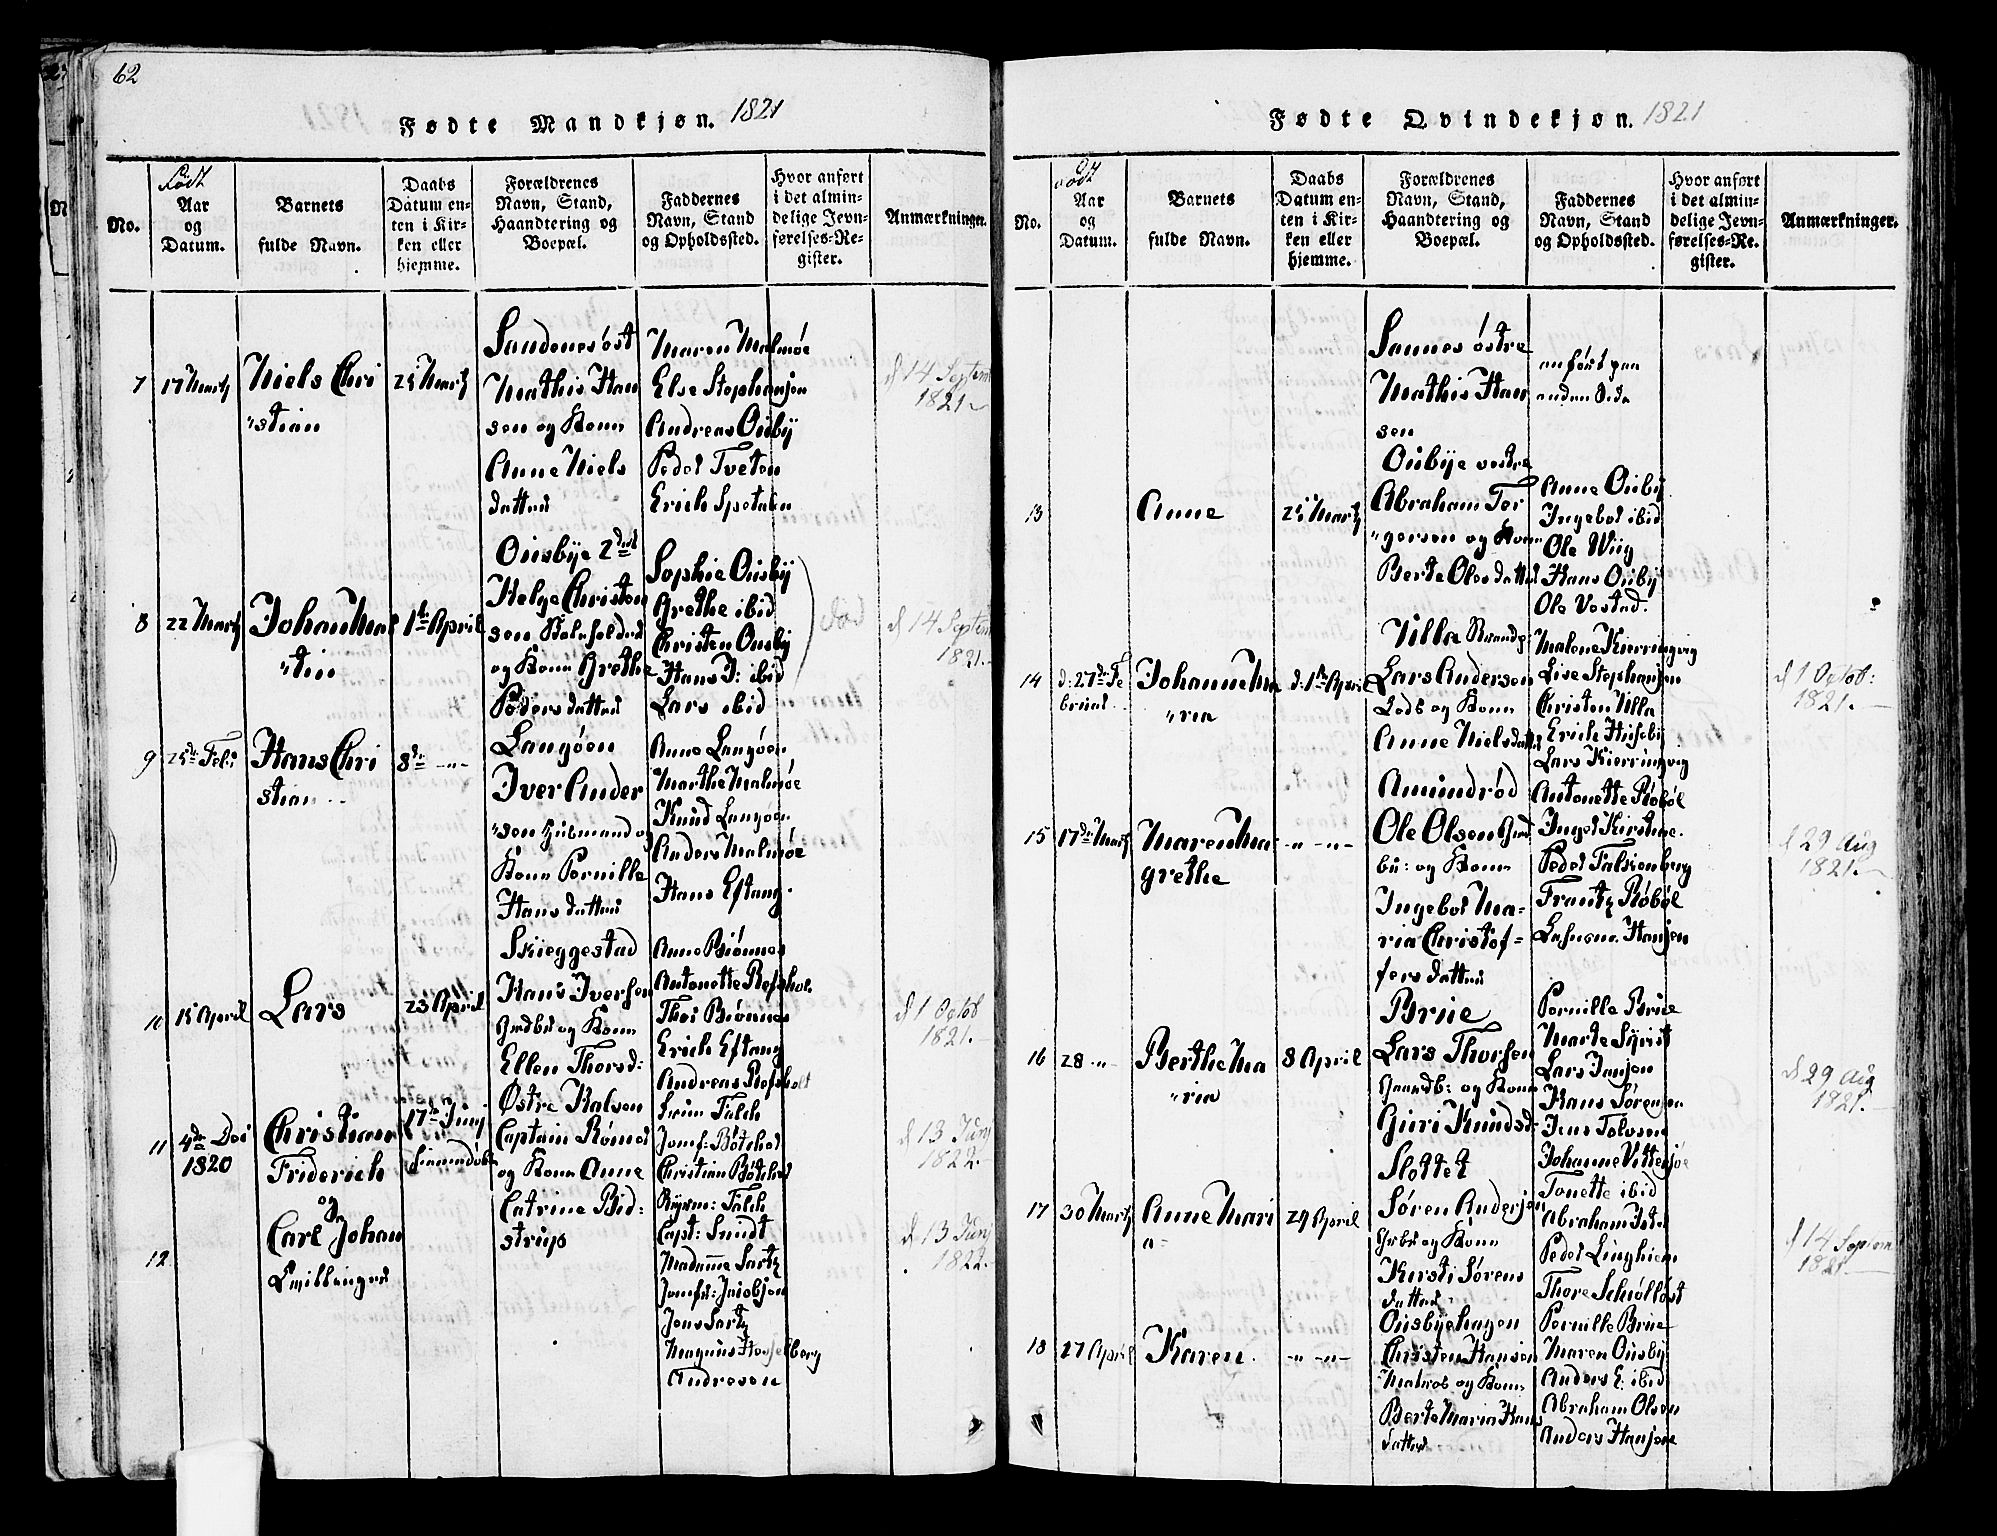 62
Fødte Mandkjøn. 1821
No.
Født
Aar
og
Datum.
Barnets
fulde Navn.
Daabs
Datum en-
ten i Kir-
ken eller
hjemme.
Forældrenes
Navn, Stand,
Haandtering og
Boepæl.
Faddernes
Navn, Stand
og Opholdssted.
Hvor anført
i det almin-
delige Jevn-
førelses-Re-
gister.
Anmærkninger.
7
17 Martz
Niels Chri
"stian
25 Martz
Sandenes øst
Mathis Han
sen og Kone
Anne Niels
datter
Maren Malmøe
Else Stephansen
Andreas Ousby
Peder Tveten
Erich Spetalen
d 14 Septem
1821.
8
22 Martz
Johan Mar
"tin
1te April
Ousbye 2det
Helge Christen
sen
og Kone Grethe
Peders datter
Sophie Ousby
Grethe ibid
Christen Ousby
Hans J: ibid
Lars ibid
død
d 14 Septem
1821.
9
25de Feb:
Hans Chri
stian
8de -"-
Langøen
Iver Ander
"sen Huusmand og
Kone Pernille
Hans datter
Anne Langøen
Marthe Malmøe
Knud Langøen
Anders Malmøe
Hans Eftang
10
15 April
Lars
23 April
Skieggestad
Hans Iversen
Grdbr og Kone
Ellen Thorsd:
Anne Biønnes
Antonette Refsholt
Thor Biønnes
Erich Eftang
Andreas Refsholt
d 1 Octob
1821.
11
4de Dec
1820
Christian
Friderich
og
17de Junj
Østre Halsen
Captain Rømer
og Kone Anne
Catrine Bid-
strup
Falch
Jomf: Bøtcher
Christian Bøtcher
Falch
Capt: Sundt
Madamme Sartz
Jomfu: Jacobsen
Jens Sartz
Magnus Hesselberg
Andresen
d 13 Junj
1822.
12
Carl Johan
Tvillinger
d 13 Junj
1822.
Fødte Qvindekjøn. 1821
No.
Født
Aar
og
Datum.
Barnets
fulde Navn.
Daabs
Datum en-
ten i Kir-
ken eller
hjemme.
Forældrenes
Navn, Stand,
Haandtering og
Boepæl.
Faddernes
Navn, Stand
og Opholdssted.
Hvor anført
i det almin-
delige Jevn-
førelses-Re-
gister.
Anmærkninger.
Sannes østre
Mathis Han
sen
anført paa
anden Side
13
Anne
25 Martz
Ousbye vestre
Abraham Tor
"gersen og Kone
Berte Olesdatter
Anne Ousby
Ingebor ibid
Ole Wiig
Hans Ousby
Ole Vestad.
14
d: 27de Fe
bruar
Johanne Ma
"ria
d: 1te April
Villa
Lars Andersen
Lods og Kone
Anne Nielsdatter
Malene Kierringvig
Lise Stephansen
Christen Villa
Erich Huseby
Lars Kierringvig
d 1 Octob:
1821.
15
17de Martz
Maren Ma
grethe
-"- -"-
Amundrød
Ole Olsen Grd
br: og Kone
Ingebor Ma-
ria Christof-
fers datter
Antonette Røbøl
Inger Kirstine
Peder Falkenberg
Frantz Røbøl
Hansen
d 29 Aug
1821.
16
28 -"-
Berthe Ma
"ria
8 April
Brue
Lars Thorsen
Gaardb: og Kone
Guri Knudsd
Pernille Brue
Marte
Lars Jansen
Hans Sørensen
Jens Tolvsen
d 29 Aug
1821.
17
30 Martz
Anne Mari
a-
29 April
Slottet
Søren Andersen
Grbr og Kone
Kirsti Sørens
datter
Johanne Vittersøe
Tonette ibid
Abraham
Peder Linghiem
Thore Schølløst
d 14 Septem
1821.
18
27 April
Karen
-"- -"-
Ousbyehagen
Christen Hansen
Matros og Kone
Berte Maria Hans
datter
Pernille Brue
Maren Ousby
Anders E. ibid
Abraham Olsen
Anders Hansen